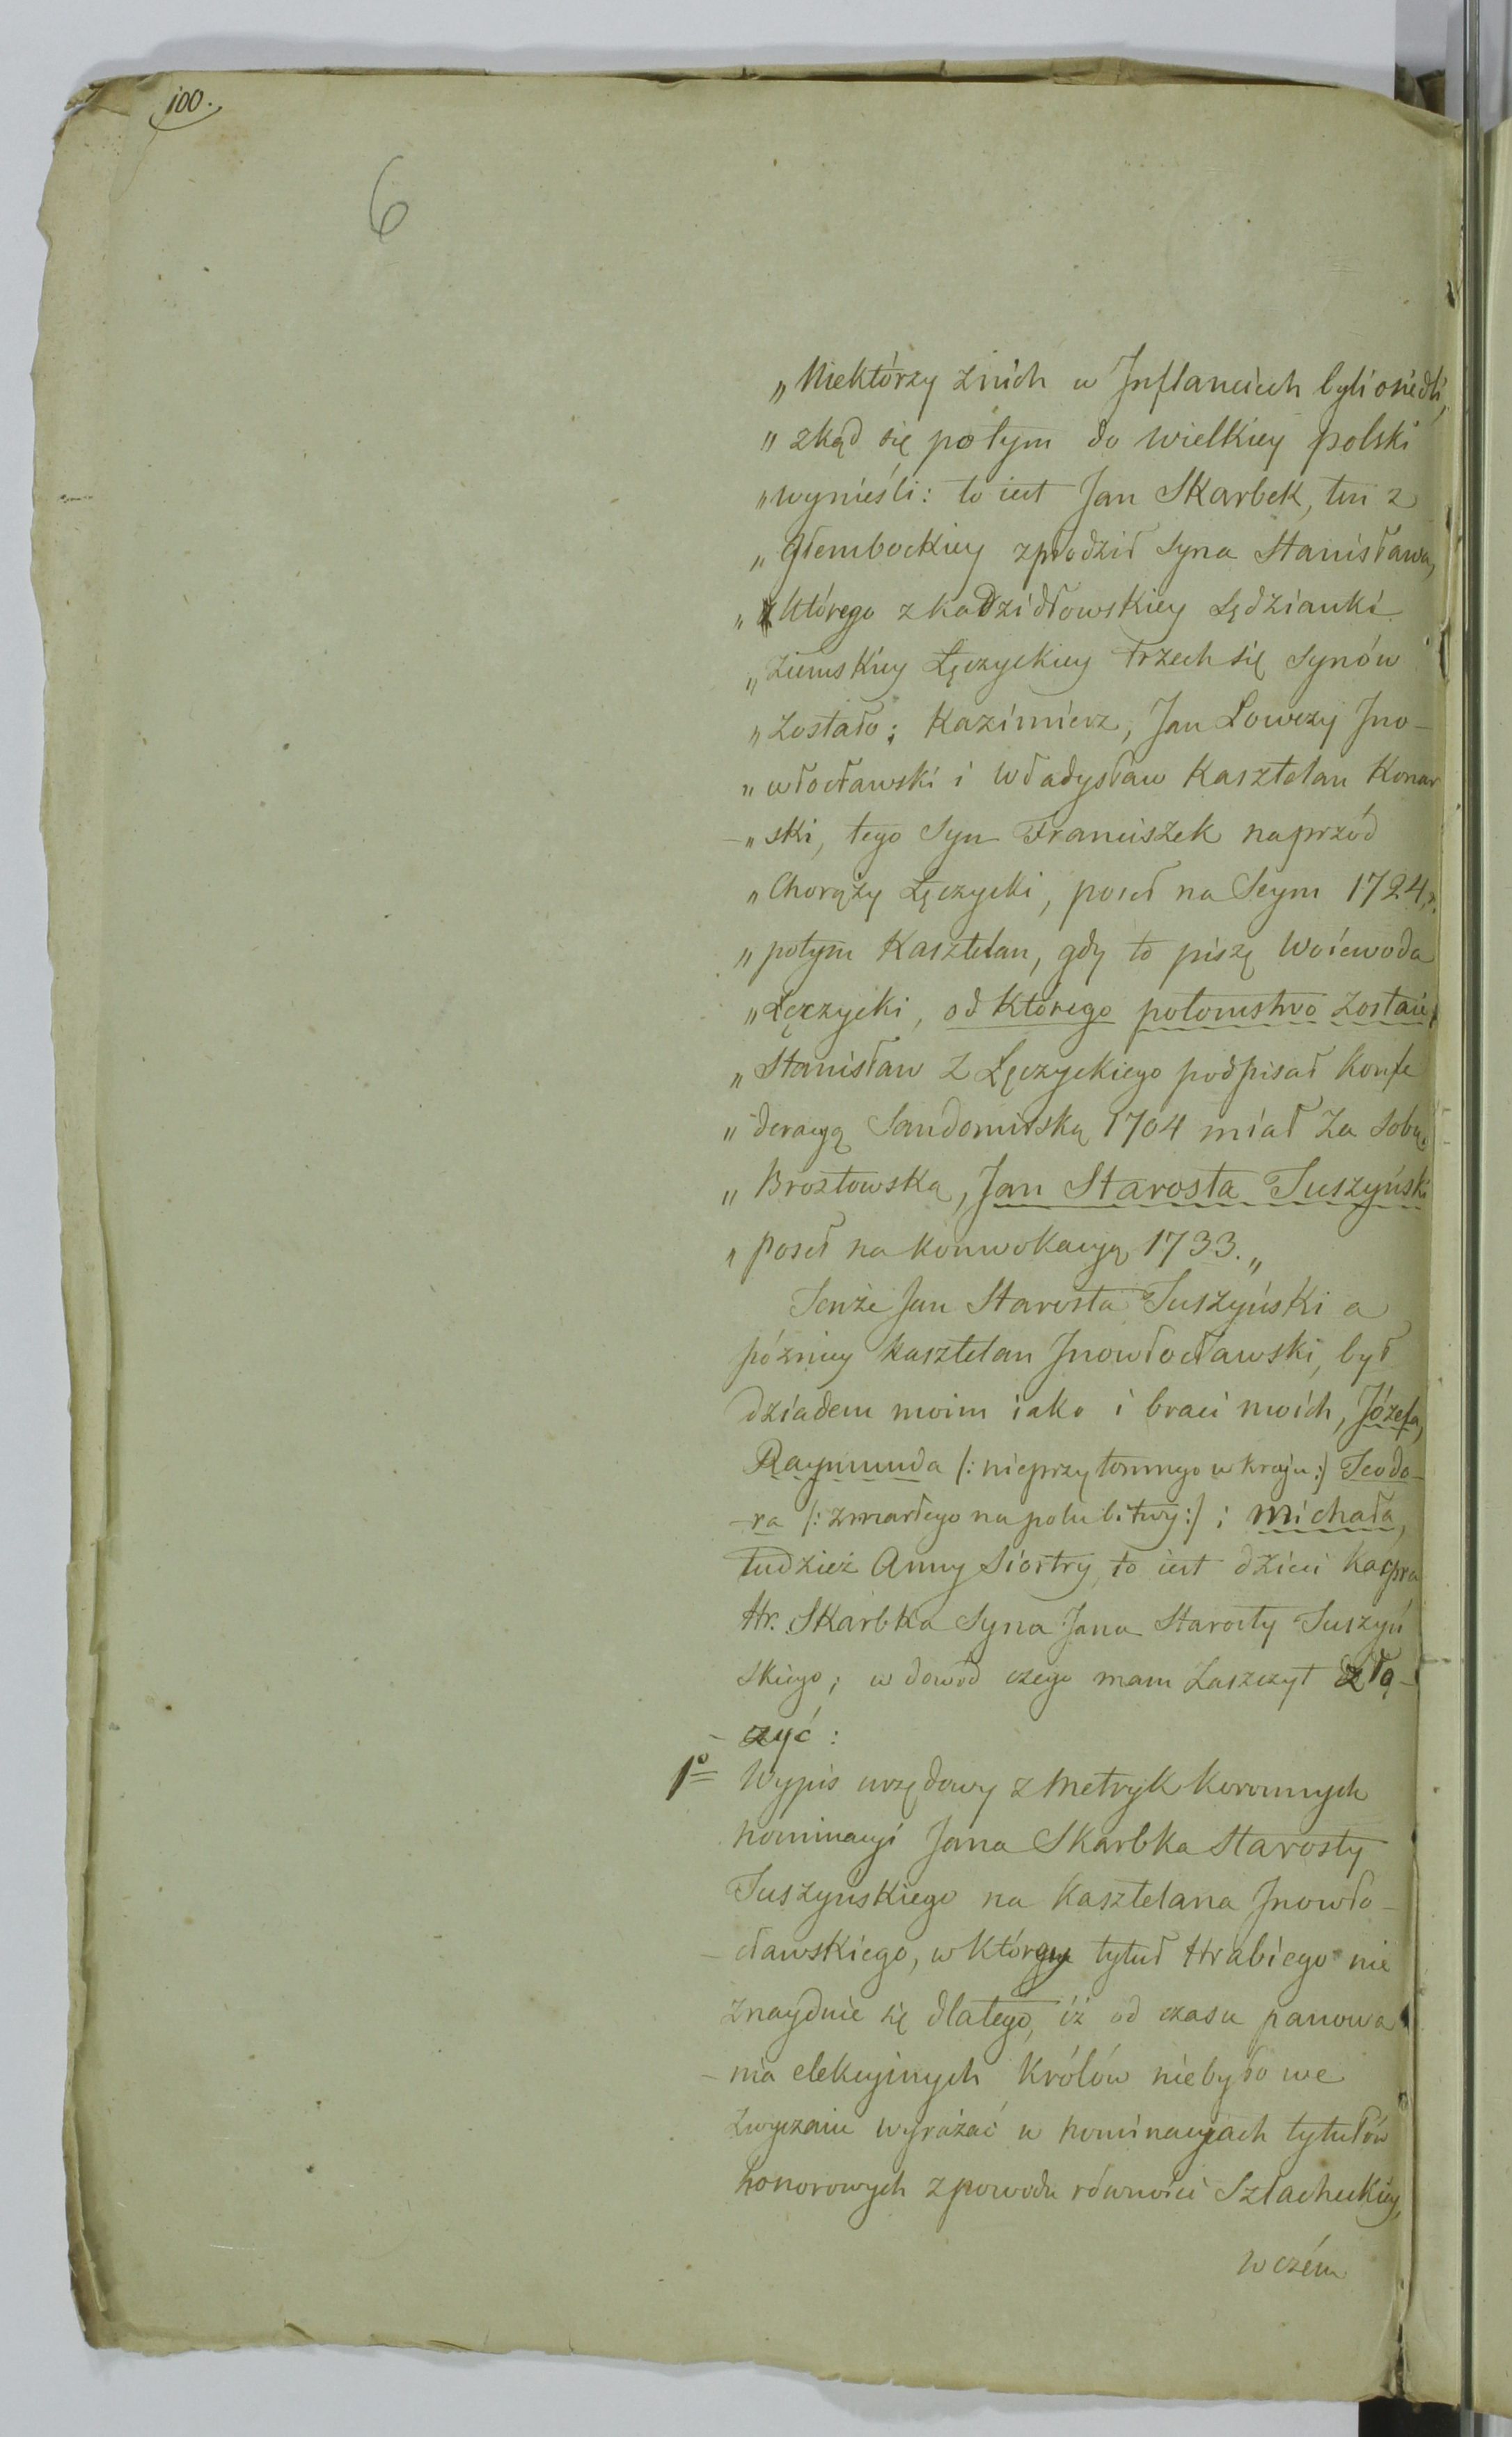 100.
6
„Niektórzy z nich w Inflanciech byli osiedli,
„zkąd się potym do wielkiey polski
„wynieśli: to iest Jan Skarbek, ten z
„Głembockiey zpłodził Syna Stanisława,
„z którego z kadzidłowskiey Sędzianki
„Ziemskiey Łęczyckiey trzech się Synów
„Zostało; Kazimierz, Jan Łowczy Jno-
„włocławski i Władysław Kasztelan Konar
-„ski, tego Syn Franciszek naprzód
„Chorąży Łęczycki, poseł na Seym 1724, r.
„potym Kasztelan, gdy to piszę Woiewoda
„Łęczycki, od którego potomstwo Zostaie,
„Stanisław z Łęczyckiego podpisał Konfe
„deracyą Sandomirską 1704 miał Za Sobą
„Broztowską, Jan Starosta Tuszyński
„poseł na konwokacyą 1733.„
Tenże Jan Starosta Tuszyński a
późniey kasztelan Jnowłocławski, był
dziadem moim iako i braci moich, Józefa,
Raymunda /: nieprzytomnego w kraju :/ Teodo-
-ra /: zmarłego na polu bitwy :/ i Michała,
tudzież Anny Siostry, to iest dzieci Kacpra
Hr. Skarbka Syna Jana Starosty Tuszyń
skiego; w dowód czego mam Zaszczyt złą-
- czyć:
1º Wypis urzędowy z Metryk koronnych
nominacyi Jana Skarbka Starosty
Tuszynskiego na Kasztelana Jnowło-
- cławskiego, w którey tytuł Hrabiego nie
znayduie się dlatego, iż od czasu panowa
- nia elekcyinych Królów niebyło we
zwyczaiu wyrażać w nominacyiach tytułów
honorowych z powodu równości Szlacheckiey,
w czém